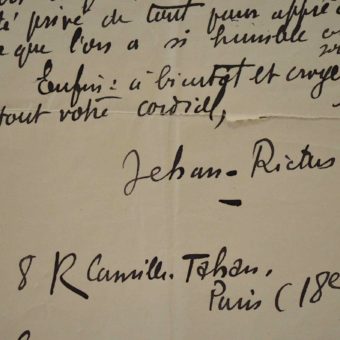 té privé de tout pour appré
que l'on a si humble
Enfin : à bientôt et croye
tout votre cordial,
Jehan-Rictus
8 R Camille-Tahan.
Paris (18e